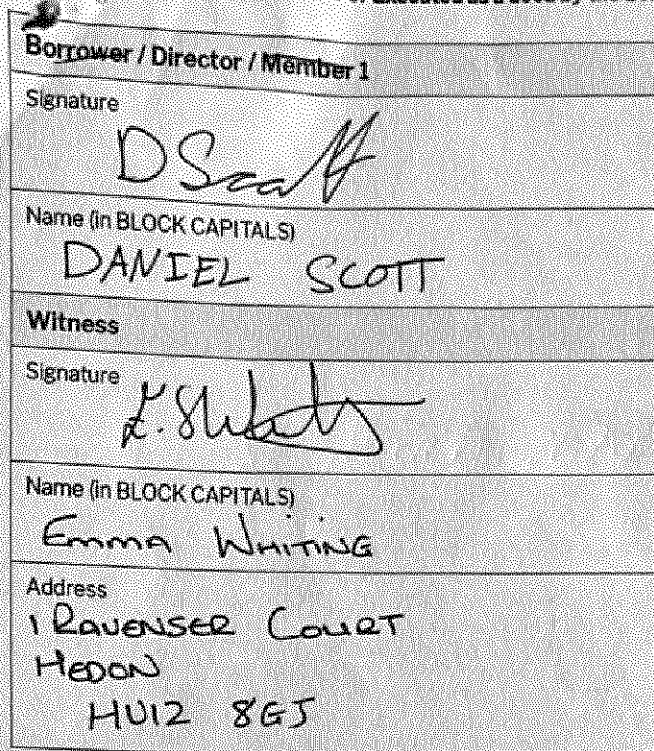 Executed as a deed by the
Borrower / Director / Member 1
Signature
D Scott
Name (in BLOCK CAPITALS)
DANIEL SCOTT
Witness
Signature
Name (in BLOCK CAPITALS)
Emma WHITING
Address
1 RAVENSER COURT
HEDON
HU12 8GJ